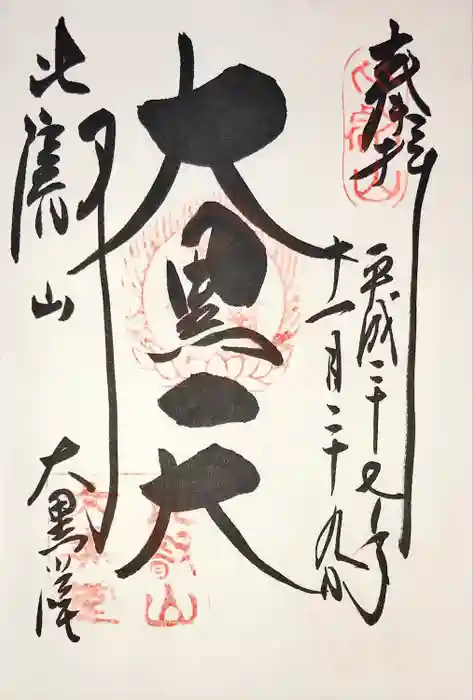 奉拝
平成二十七年
十一月二十九日
大黒天
比叡山
大黒堂